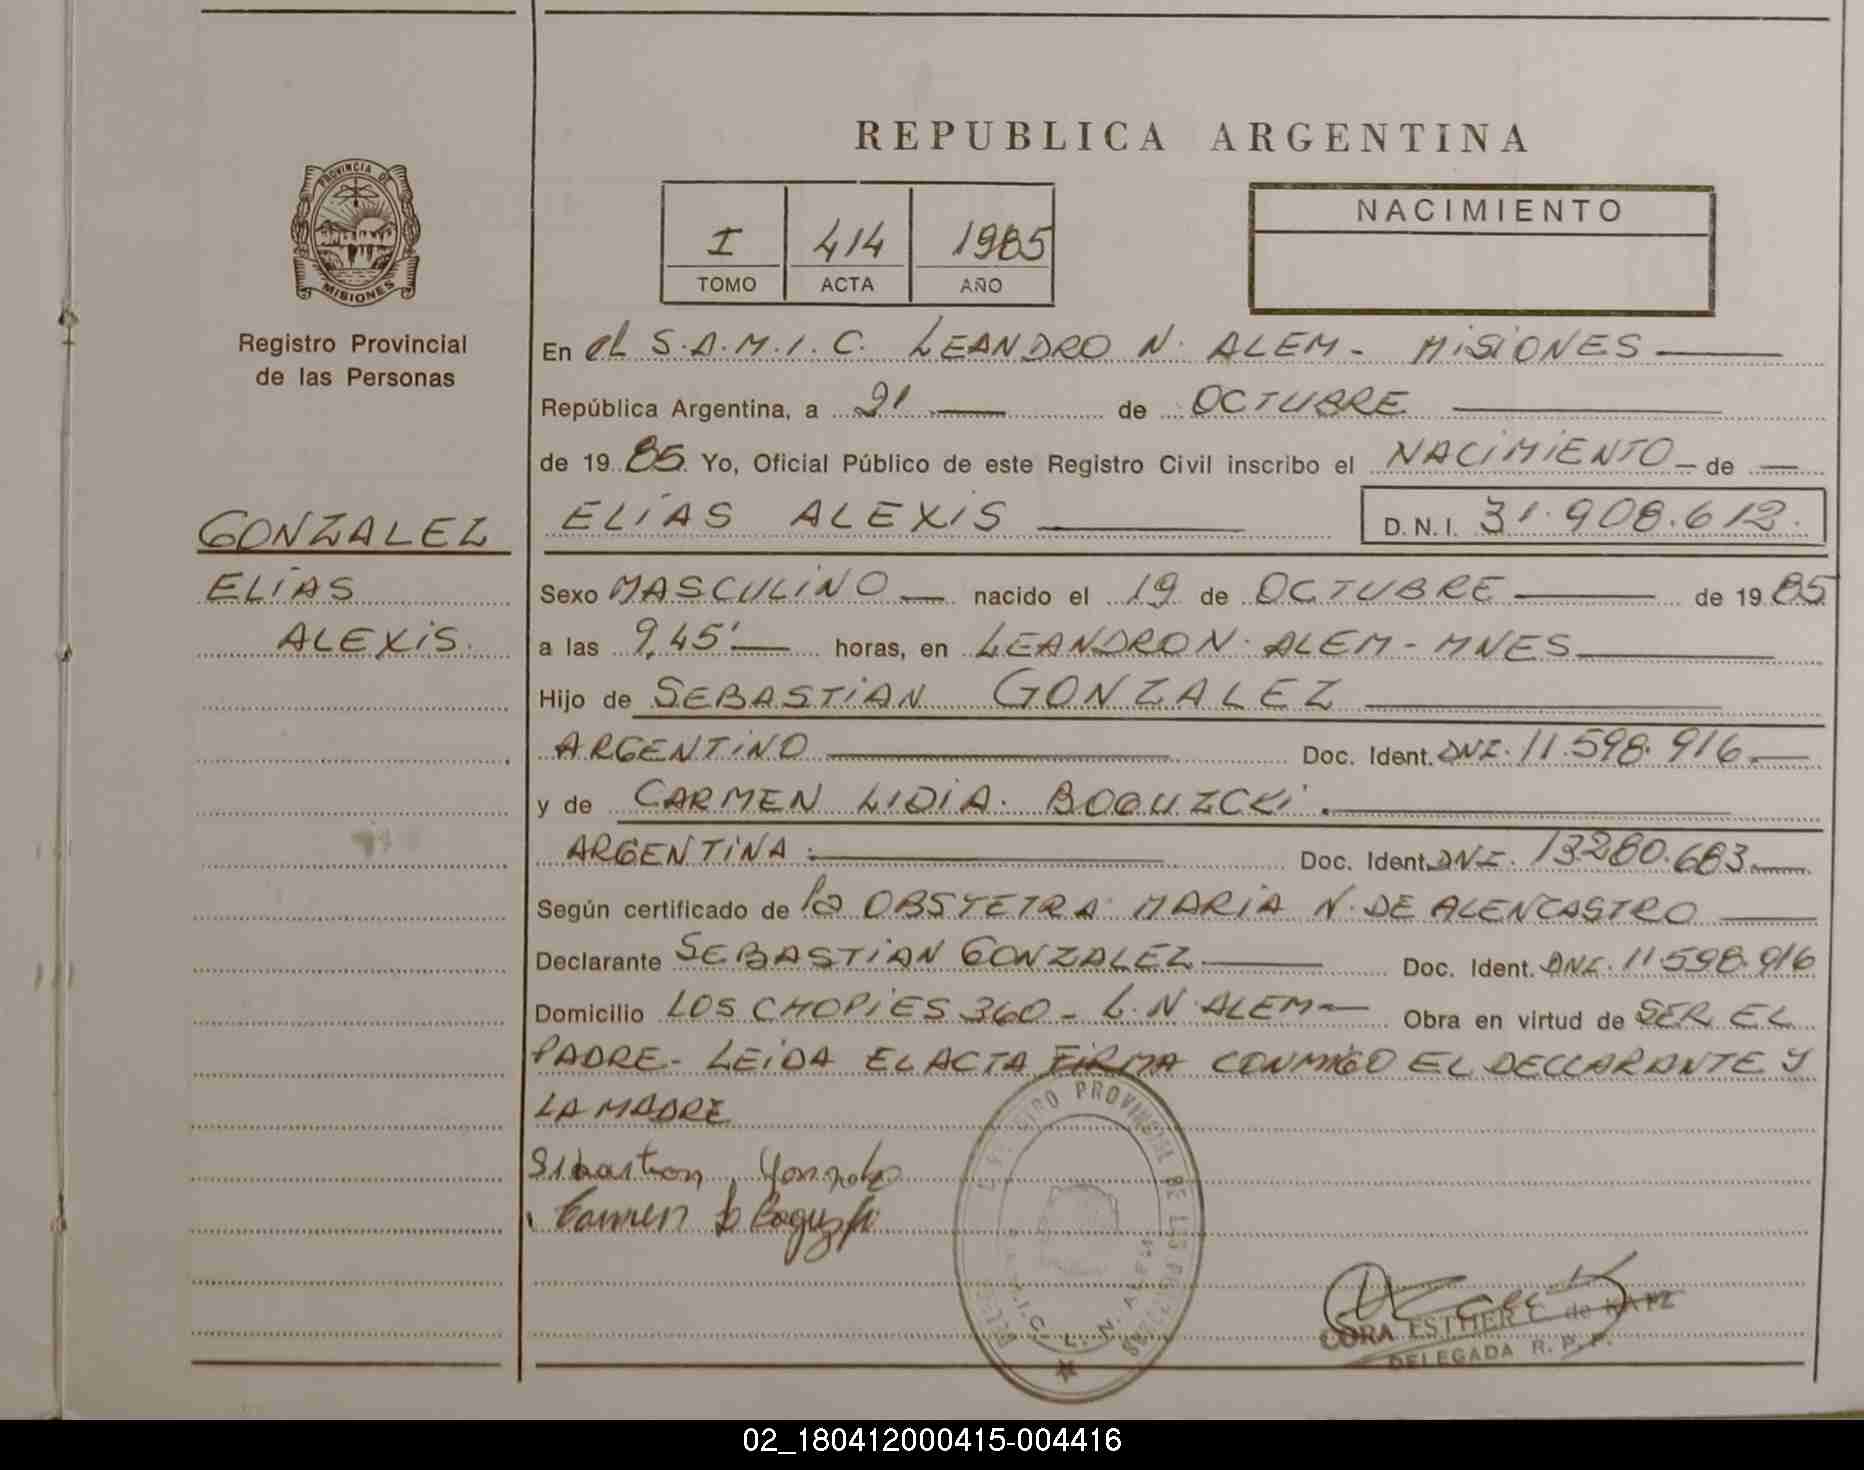 REPUBLICA ARGENTINA
PROVINCIA DE
MISIONES
Registro Provincial
de las Personas
I 414 1985
TOMO ACTA AÑO
NACIMIENTO
En el S.A.M.I.C. LEANDRO N. ALEM - MiSiONES
República Argentina, a 21 de OCTUBRE
de 19 85 Yo, Oficial Público de este Registro Civil inscribo el NACiMiENTO de
GONZALEZ
ELiAS ALEXiS
D.N.I. 31.908.612.
ELiAS
ALEXiS.
Sexo MASCULiNO nacido el 19 de OCTUBRE de 19 85
a las 9,45' horas, en LEANDRO N. ALEM - MNES
Hijo de SEBASTiAN GONZALEZ
ARGENTiNO Doc. Ident. DNI. 11.598.916
y de CARMEN LIDiA. BOGUZCKi.
ARGENTiNA. Doc. Ident. DNI. 13.280.683
Según certificado de la OBSTETRA MARiA N. DE ALENCASTRO
Declarante SEBASTiAN GONZALEZ Doc. Ident. DNI. 11.598.916
Domicilio LOS CHOPiES 360 - L.N. ALEM Obra en virtud de SER EL
PADRE - LEiDA EL ACTA FiRMA CONMiGO EL DECLARANTE Y
LA MADRE
Sebastian Gonzalez
Carmen L Boguzki
PROVINCIAL DE LAS
S.A.M.I.C. L. N. ALEM
CORA ESTHER de KATZ
DELEGADA R. P. P.
02_180412000415-004416